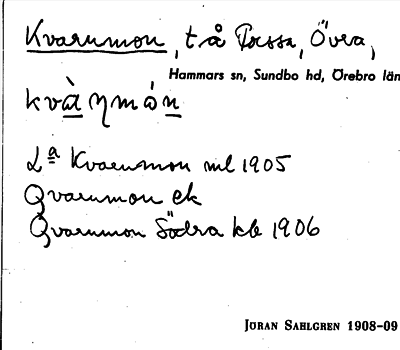 Kvarnmon, t å Tossa, Övra,
Hammars sn, Sundbo hd, Örebro län
kvà̱ṇmóṉ
La Kvarnmon ml 1905
Qvarnmon ek
Qvarnmon Södra kb 1906
JÖRAN SAHLGREN 1908-09